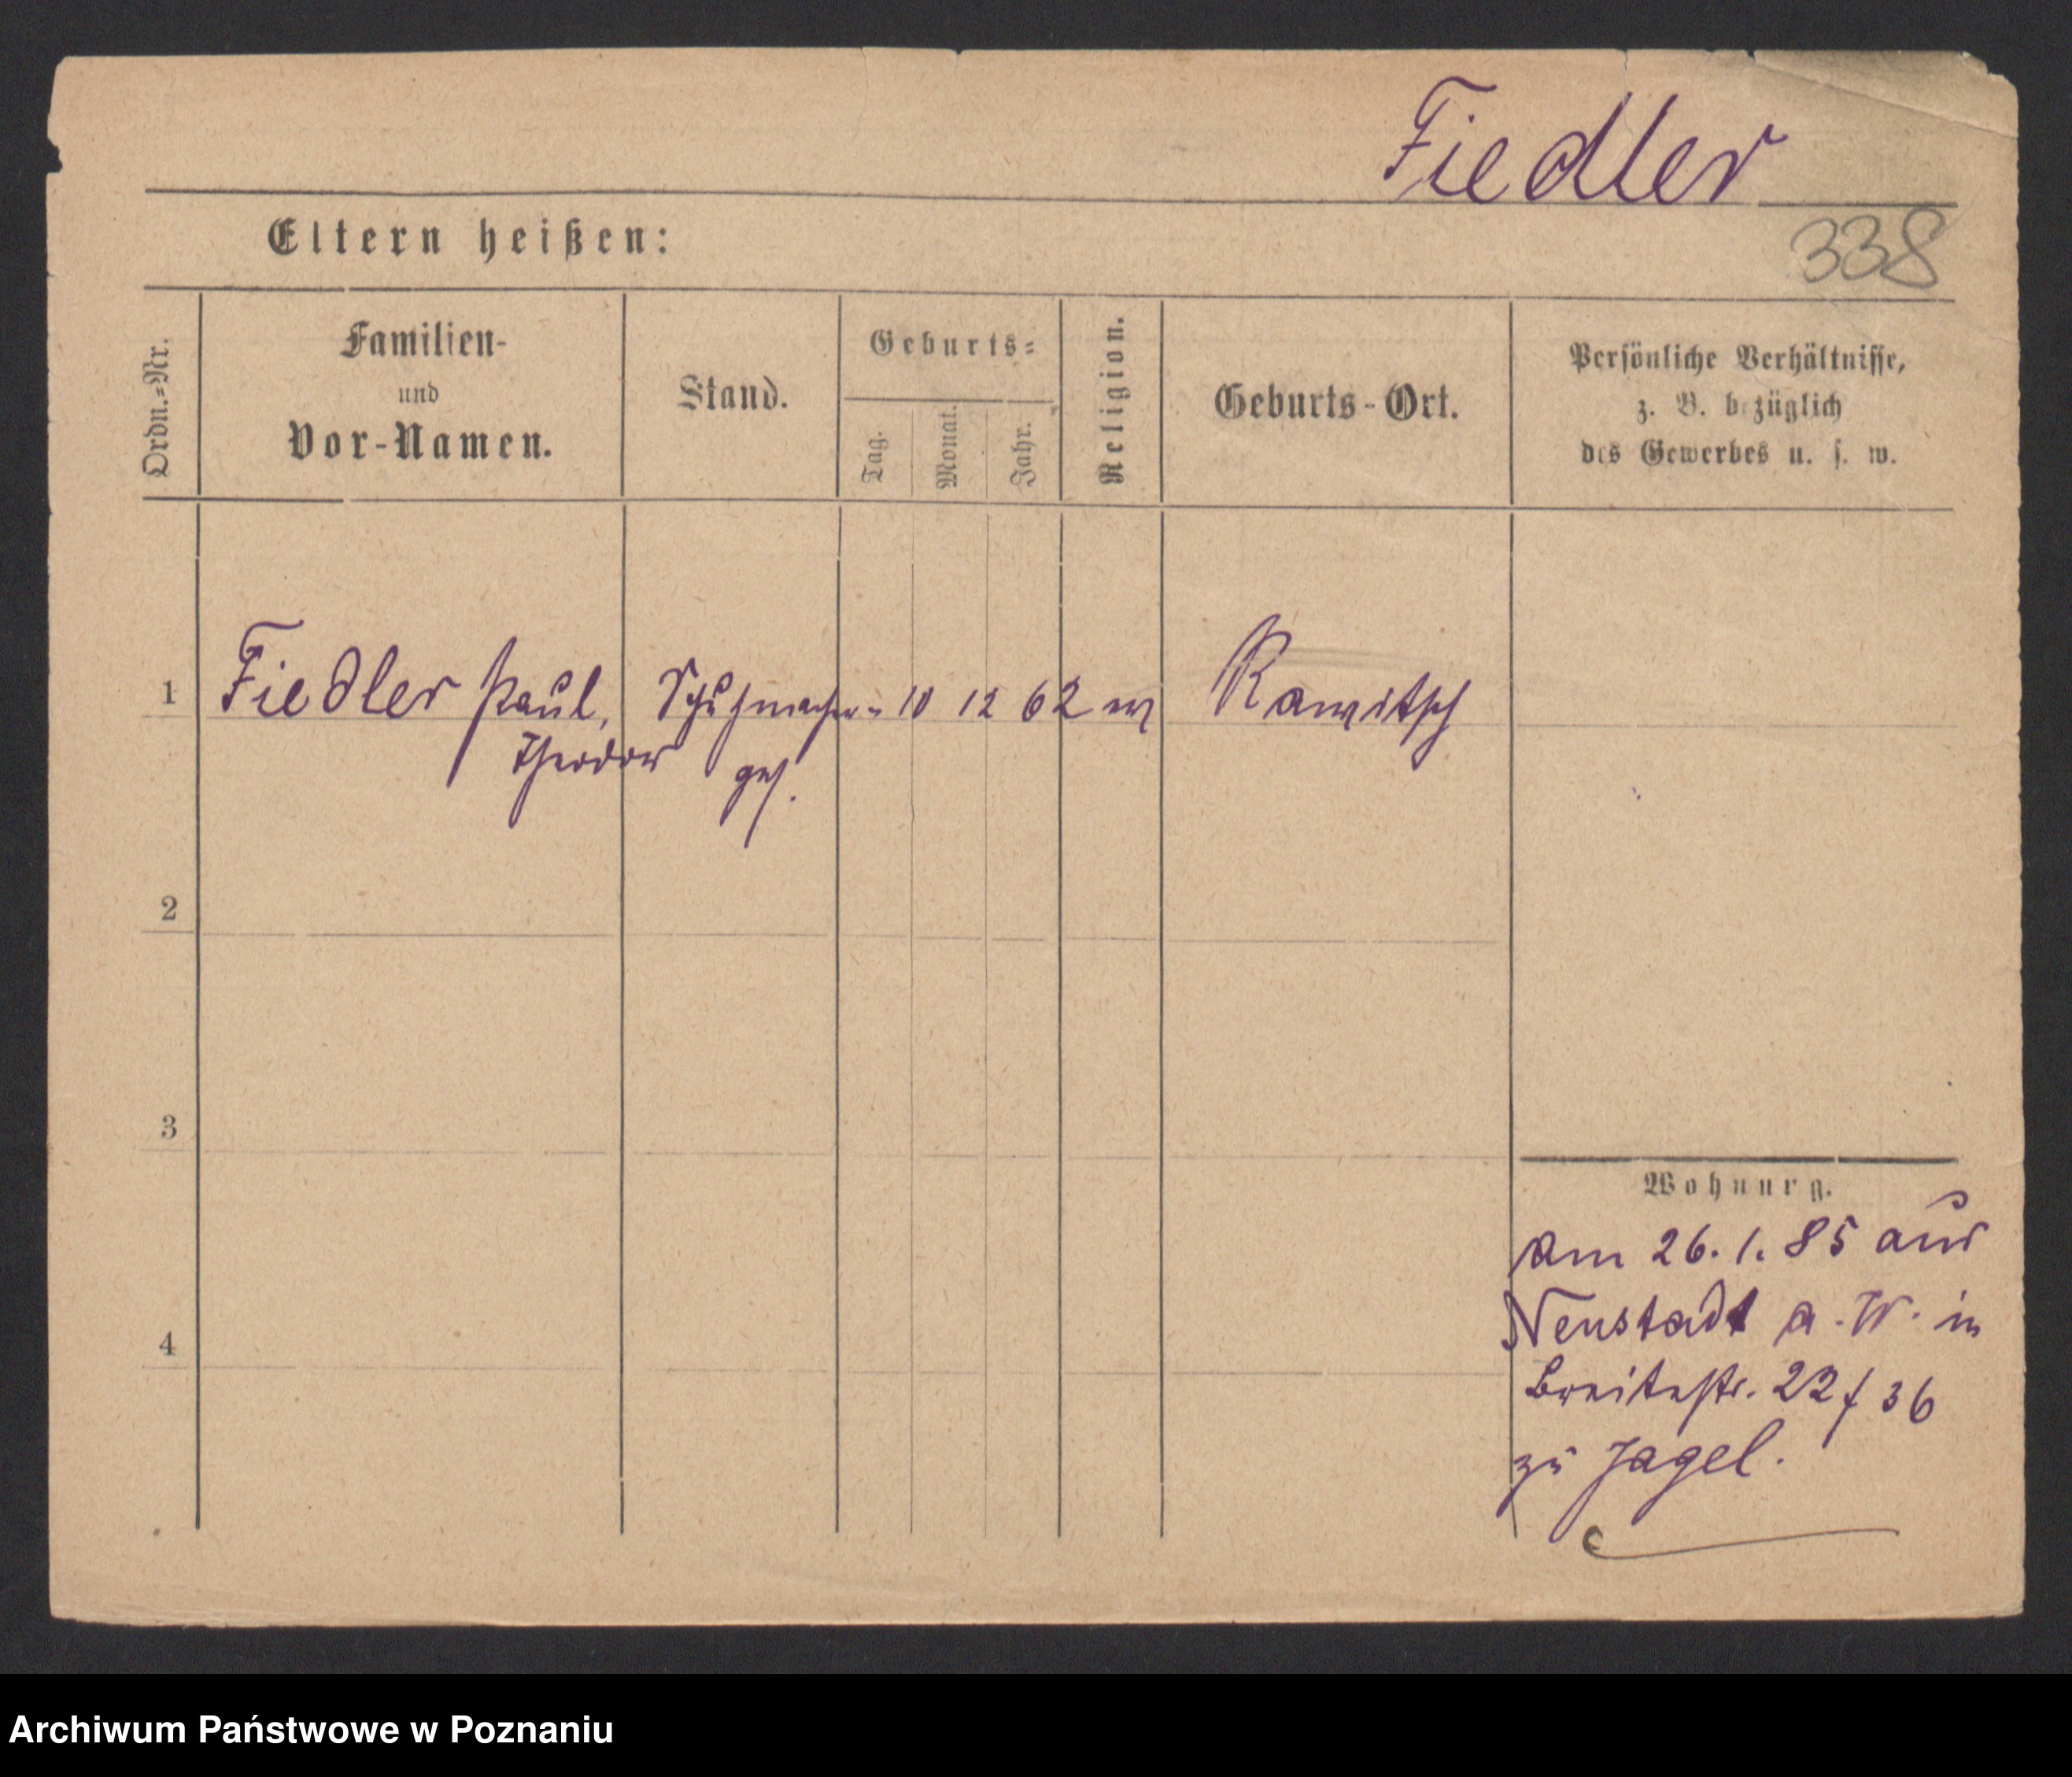 Fiedler
338
Eltern heißen:
Ordn.-Nr.
Familien-
und
Vor-Namen.
Stand.
Geburts-
Tag.
Monat.
Jahr.
Religion.
Geburts-Ort.
Persönliche Verhältnisse,
z. B. bezüglich
des Gewerbes u. s. w.
1 Fiedler Paul, Schuhmacher- 10 12 62 ev Rawitsch
Theodor ges.
2
3
4
Wohnung.
Am 26. 1. 85 aus
Neustadt a. W. in
Breitestr. 22 / 36
zu Jagel.
Archiwum Państwowe w Poznaniu